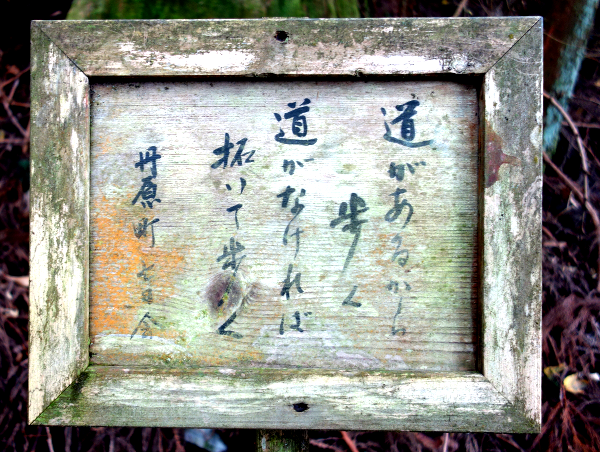 道があるから
歩く
道がなければ
拓いて歩く
丹原町 七日会